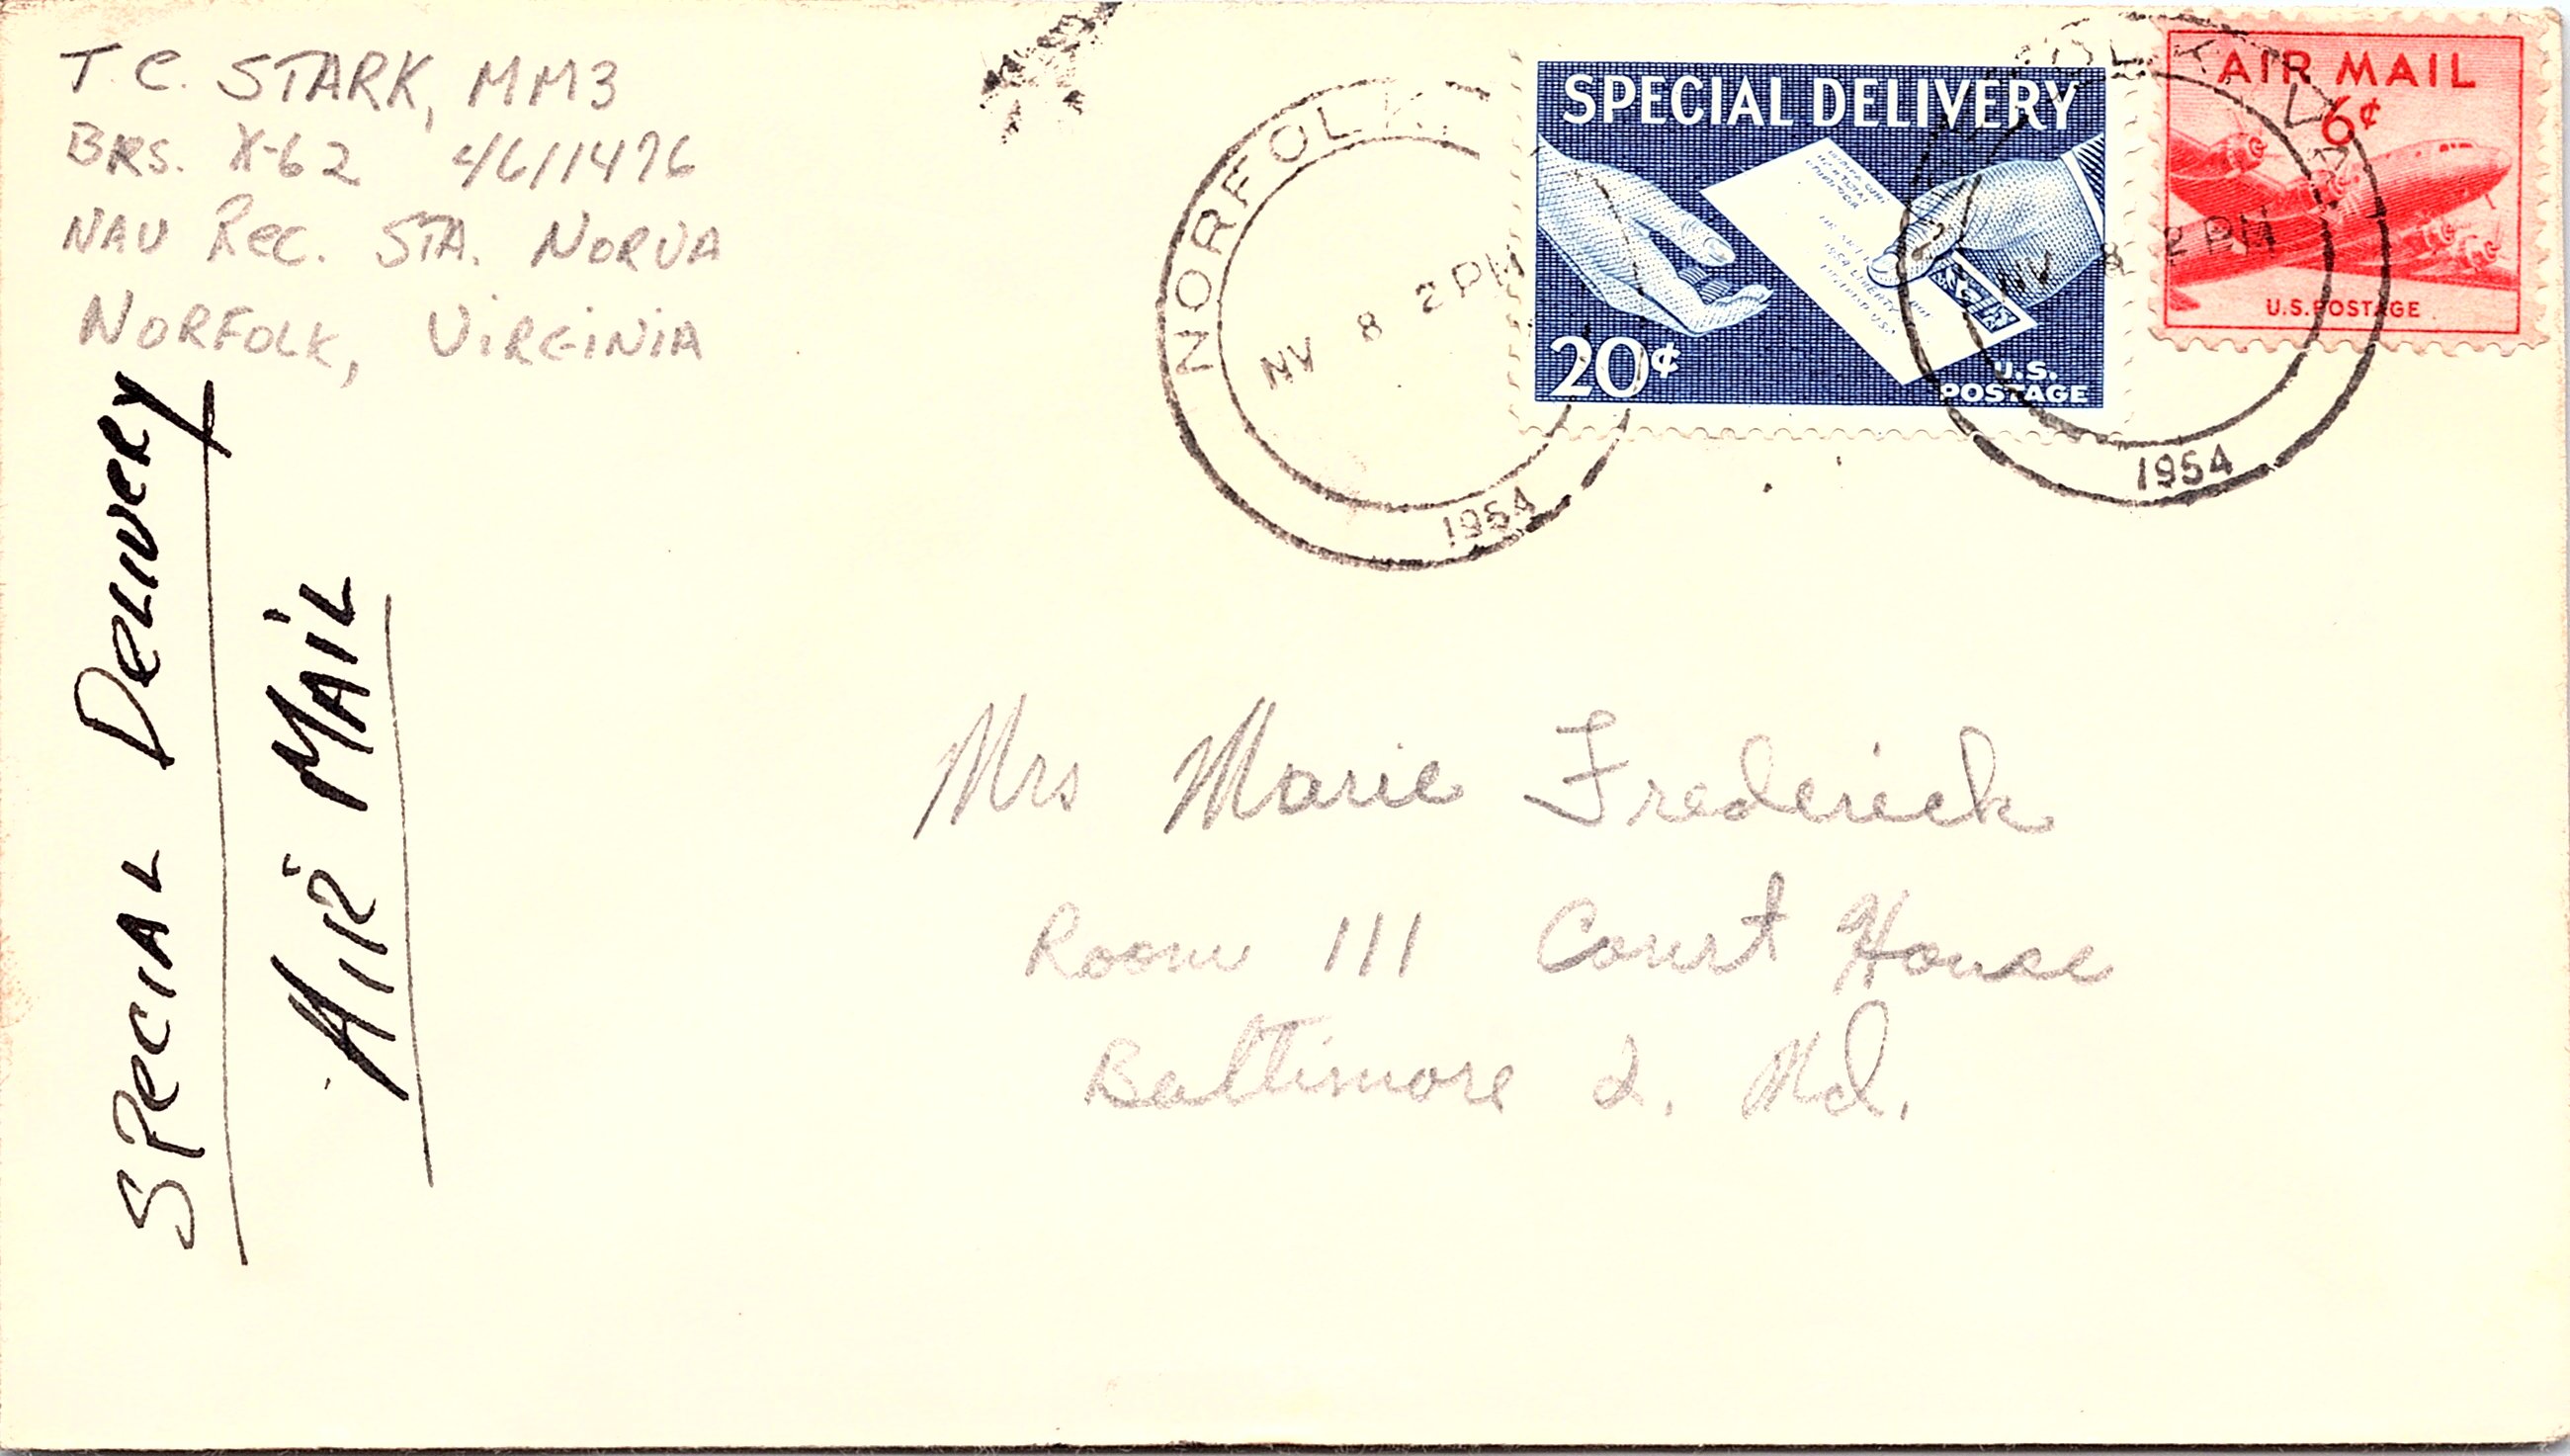 T. C. STARK, MM3
BRS. X-62 4/6/1476
NAV Rec. STA. NORVA
NORFOLK, VIRGINIA
SPECIAL DELIVERY
AIR MAIL
NORFOLK
NV 8 2 PM
1954
SPECIAL DELIVERY
20¢
U.S.
POSTAGE
NV 8 2 PM
1954
AIR MAIL
6¢
U.S. POSTAGE
Mrs Marie Frederick
Room 111 Court House
Baltimore 2. Md.